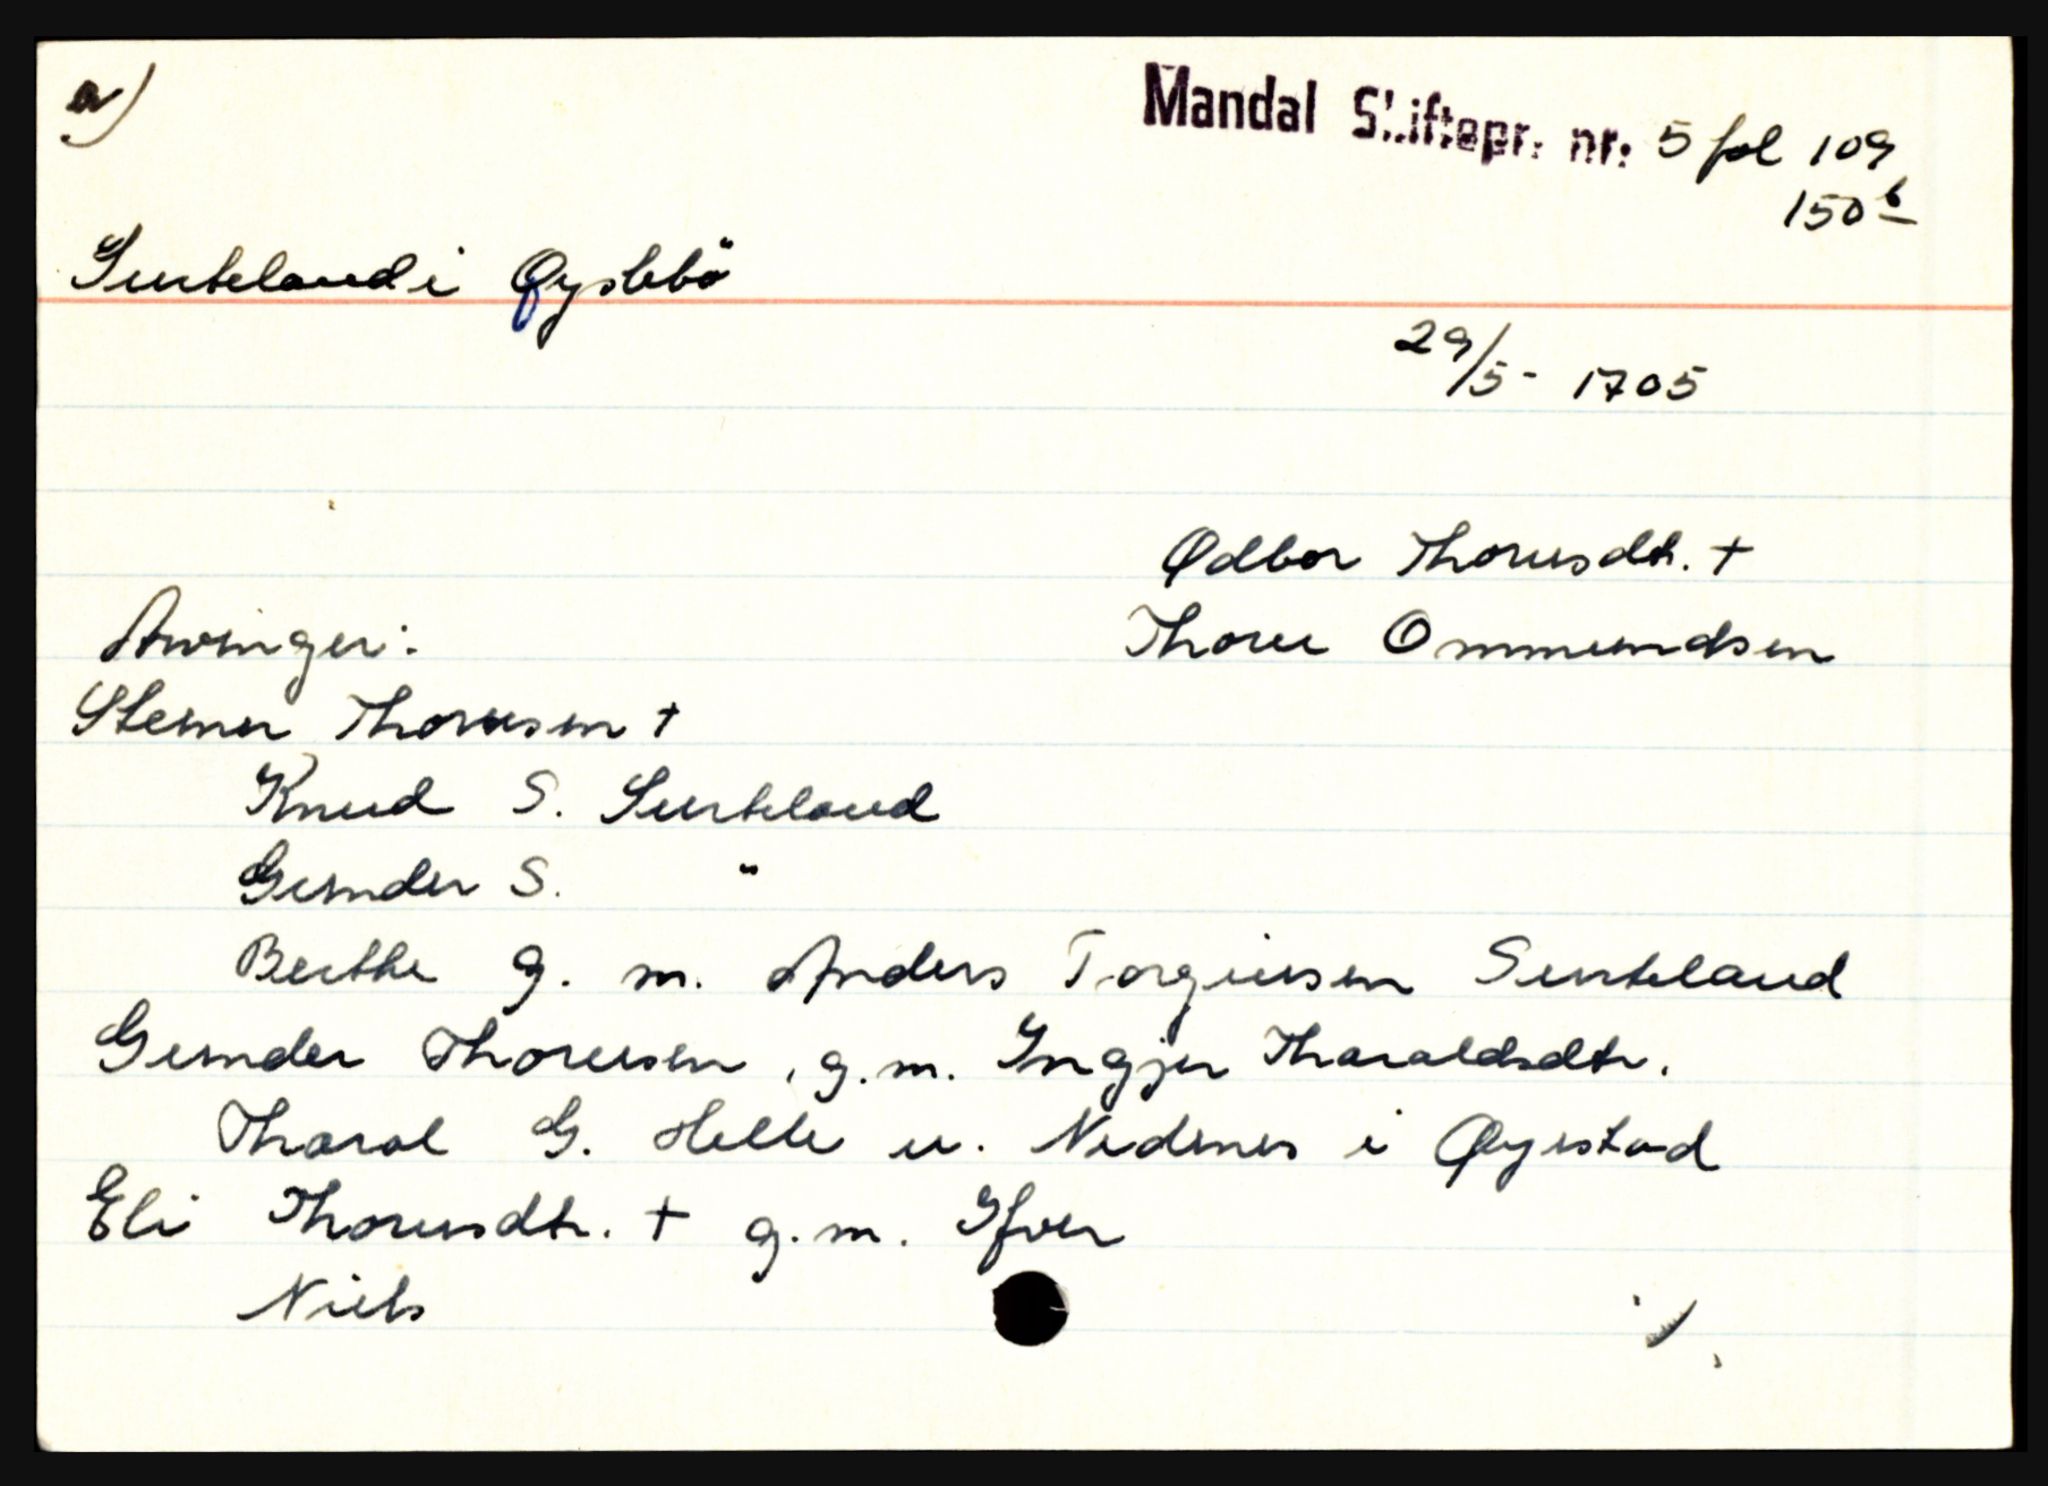 a)
Mandal Skiftepr. nr: 5 fol 109
150 b
Surteland i Øyslebö
29/5 - 1705
Odbor Thoresdtr. +
Arvinger:
Thore Ommundsen
Stener Thoresen +
Knud S. Surteland
Gunder S. "
Berthe g. m. Anders Torgiersen Surteland
Gunder Thoresen, g.m. Ingjer Tharaldsdtr.
Tharal G. Helle u. Nedenes i Øyestad
Eli Thoresdtr. + g.m. Ifver
Niels